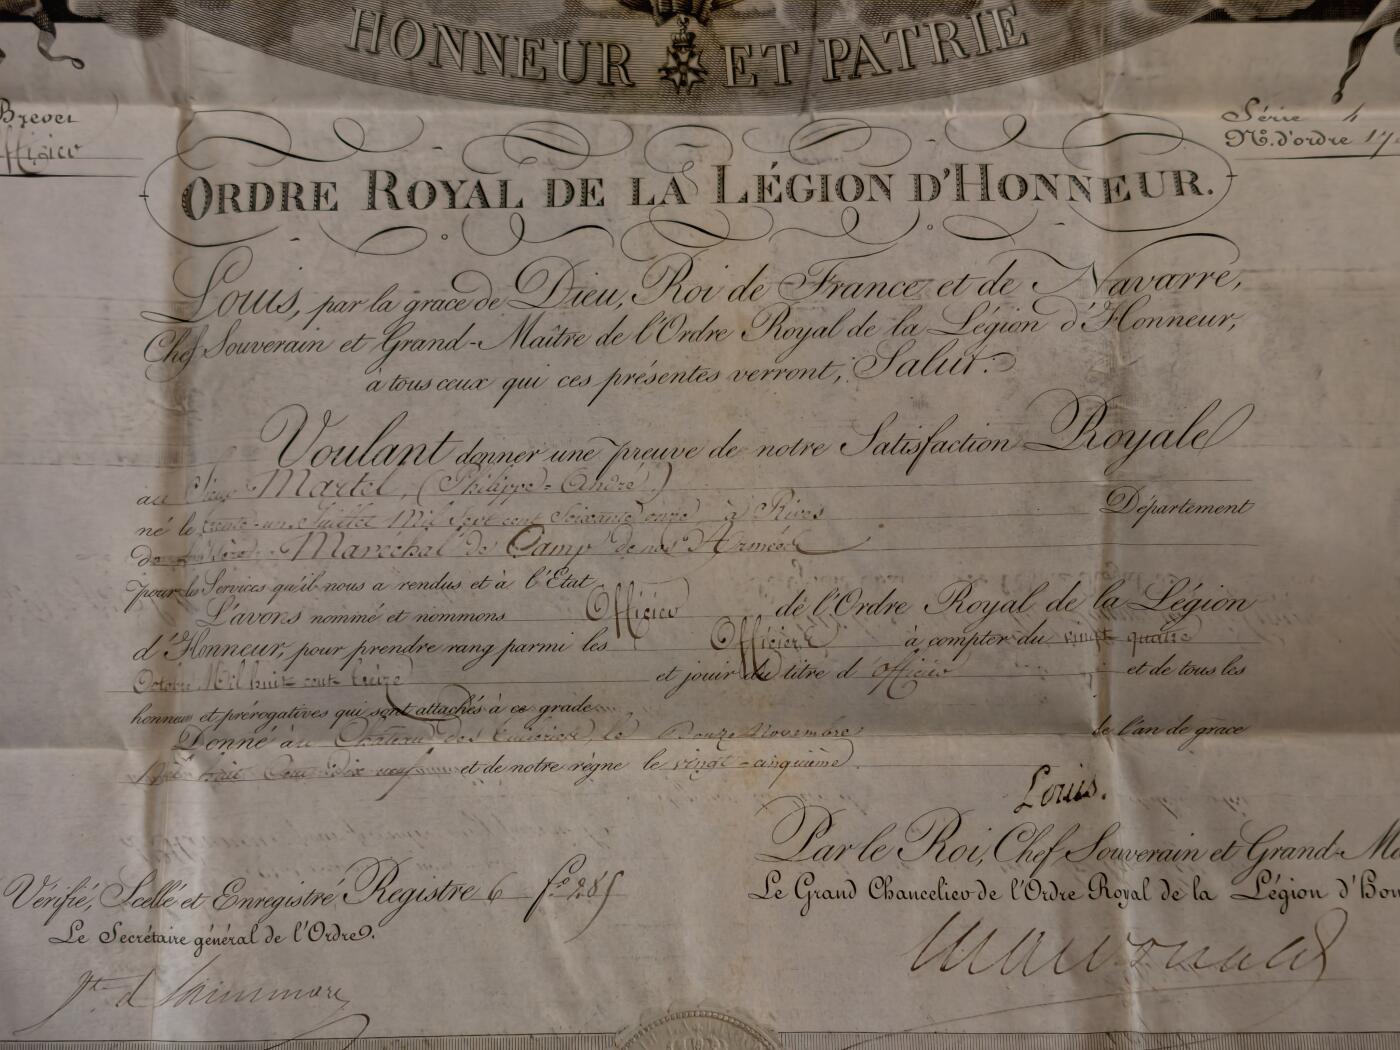 HONNEUR ET PATRIE
Brevet
Série 4
fficier
N.º d'ordre 17
ORDRE ROYAL DE LA LÉGION D'HONNEUR.
Louis, par la grace de Dieu, Roi de France et de Navarre,
Chef Souverain et Grand-Maître de l'Ordre Royal de la Légion d'Honneur,
à tous ceux qui ces présentes verront, Salut.
Voulant donner une preuve de notre Satisfaction Royale
au Sieur Martel, (Philippe-André)
né le trente-un Juillet Mil Sept cent Soixante onze à Rives Département
de Maréchal de Camp de nos Armées
pour les Services qu'il nous a rendus et à l'État
L'avons nommé et nommons Officier de l'Ordre Royal de la Légion
d'Honneur, pour prendre rang parmi les Officiers à compter du vingt quatre
Octobre Mil huit cent treize et jouir du titre d'officier et de tous les
honneurs et prérogatives qui sont attachés à ce grade.
Donné au Château des Tuileries, le Douze Novembre de l'an de grace
Mil huit Cent dix neuf et de notre règne le vingt-cinquième.
Louis.
Par le Roi, Chef Souverain et Grand-Ma
Vérifié, Scellé et Enregistré, Registre 6 f.º 285
Le Grand Chancelier de l'Ordre Royal de la Légion d'Hon
Le Secrétaire général de l'Ordre.
Macdonald